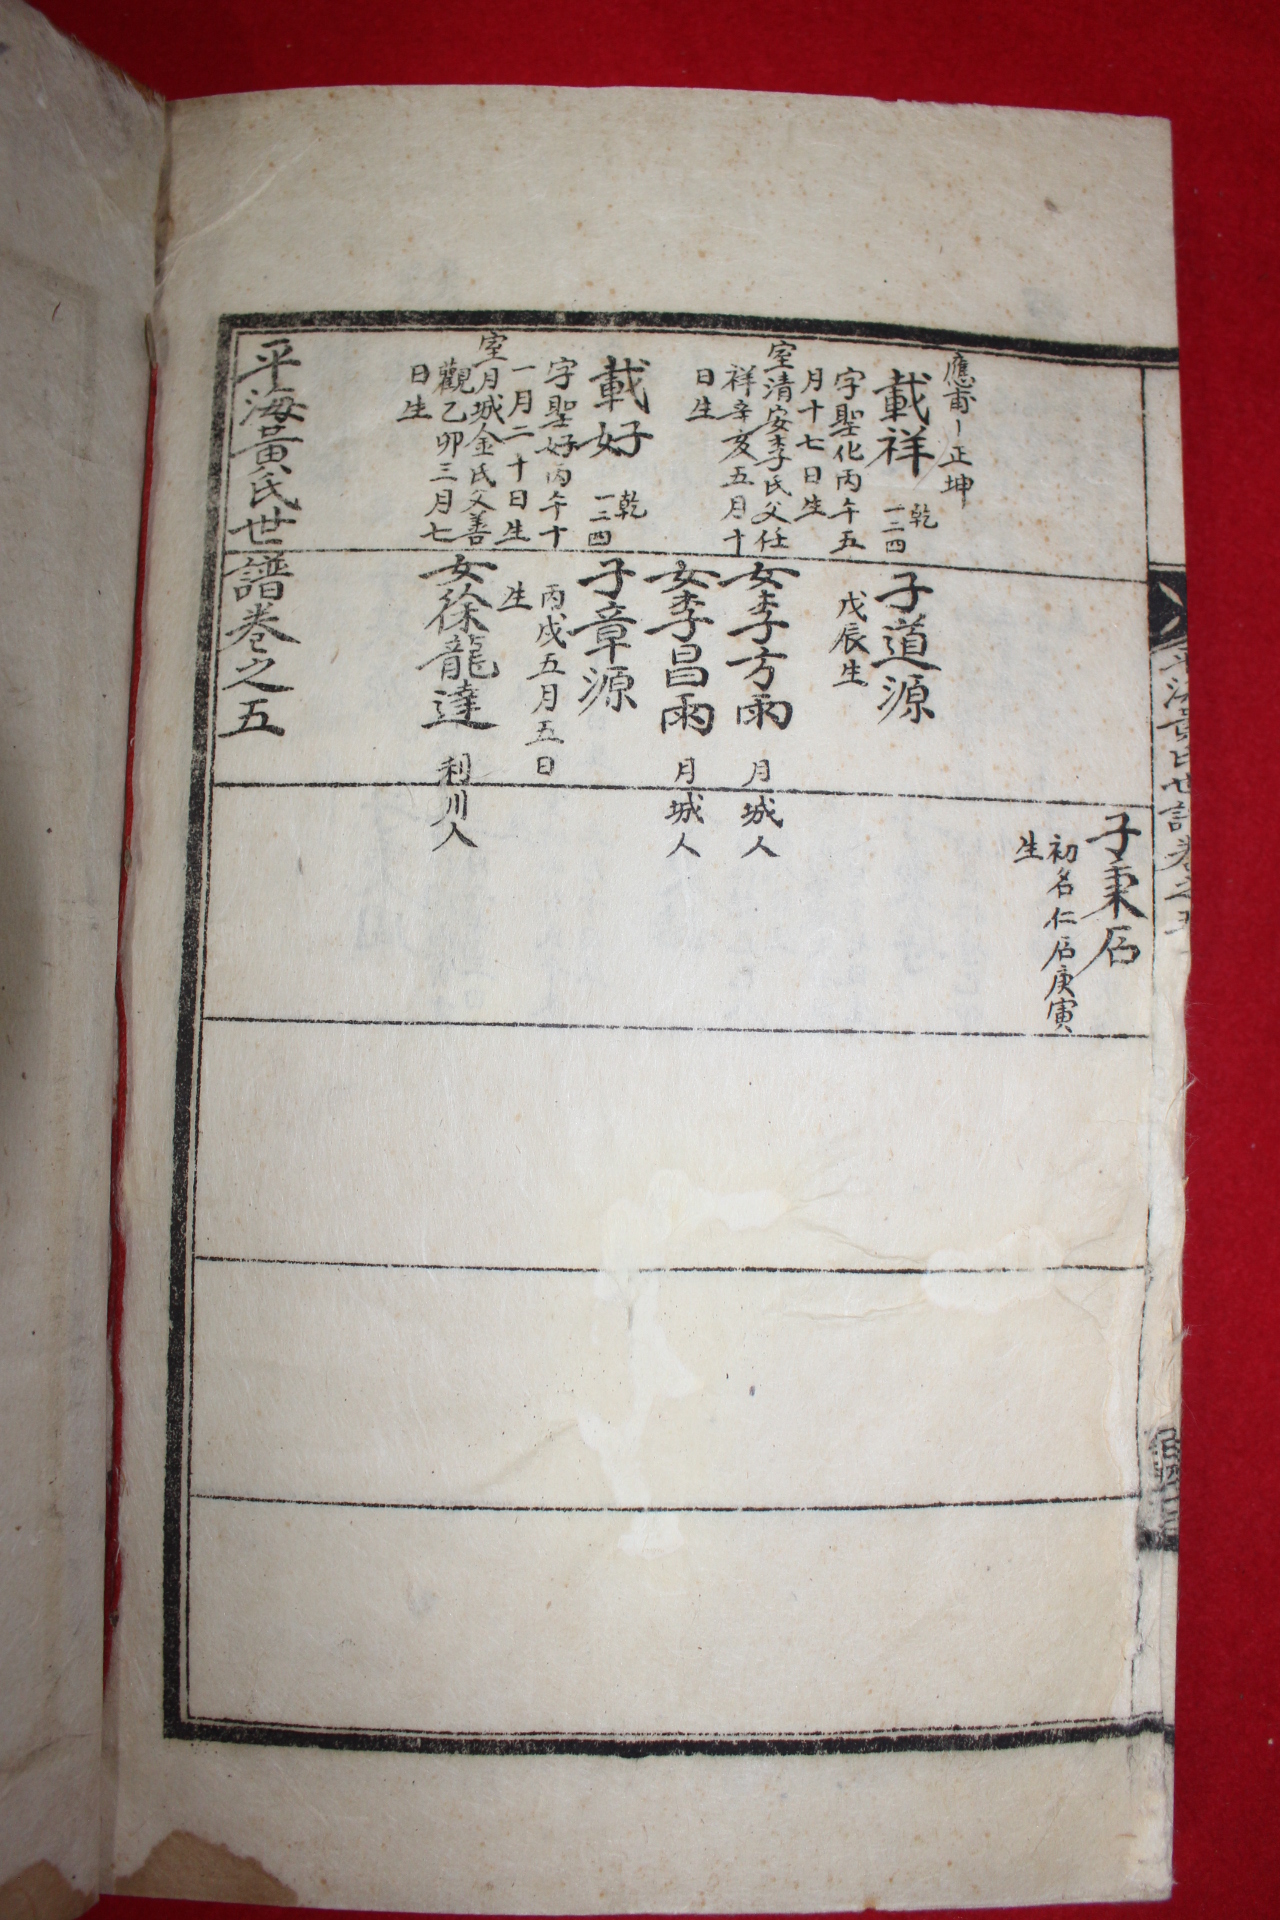 平海黃氏世譜卷之五
子秉后
初名仁后庚寅
生
應甫ー正坤
載祥
乾
一二四
字聖化丙午五
月十七日生
室清安李氏父任
祥辛亥五月十
日生
子道源
戊辰生
女李方雨 月城人
女李昌雨 月城人
載好
乾
一二四
字聖好丙午十
一月二十日生
室月城金氏父善
觀乙卯三月七
日生
子章源
丙戌五月五日
生
女徐龍達 利川人
平海黃氏世譜卷之五